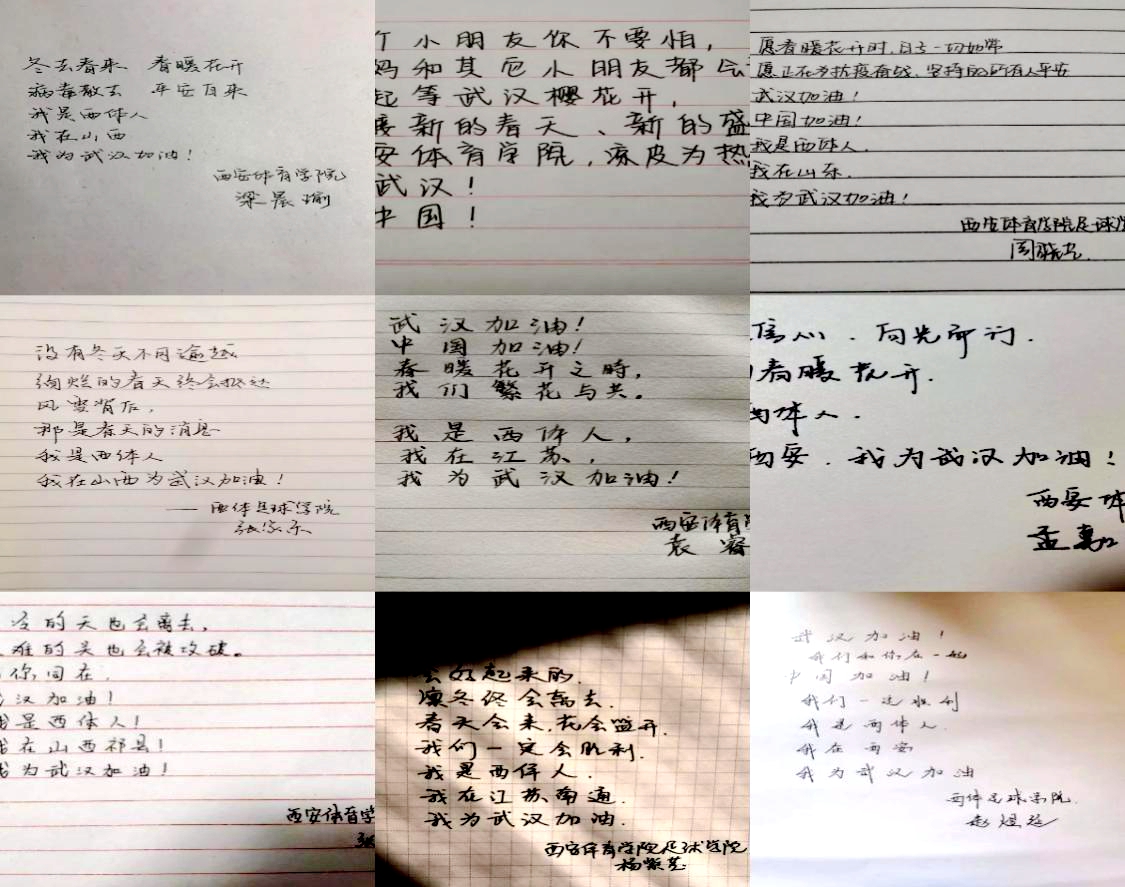 冬去春来 春暖花开
病毒散去 平安自来
我是西体人
我在山西
我为武汉加油！
西安体育学院
梁晨瑜
小朋友你不要怕，
妈和其他小朋友都会
起等武汉樱花开，
接新的春天、新的盛
安体育学院，凉皮为热
武汉！
中国！
愿春暖花开时，自与一切如常
愿正在为抗疫奋战、坚持的所有人平安
武汉加油！
中国加油！
我是西体人．
我在山东．
我为武汉加油！
西安体育学院足球学
周
没有冬天不可逾越
绚烂的春天终会抵达
风雪背后，
那是春天的消息
我是西体人
我在山西为武汉加油！
——西体足球学院
张家乐
武汉加油！
中国加油！
春暖花开之時，
我们繁花与共。
我是西体人，
我在江苏，
我为武汉加油！
西安体育
袁睿
信心．向光而行．
春暖花开．
西体人．
西安．我为武汉加油！
西安体
孟嘉
冷的天也会离去，
难的关也会被攻破。
你同在．
汉加油！
我是西体人！
我在山西祁县！
我为武汉加油！
西安体育学
会好起来的．
凛冬终会离去．
春天会来，花会盛开．
我们一定会胜利．
我是西体人．
我在江苏南通．
我为武汉加油．
西安体育学院足球学院
杨紫艺
武汉加油！
我们和你在一起
中国加油！
我们一定胜利
我是西体人．
我在西安
我为武汉加油
西体足球学院．
赵煜